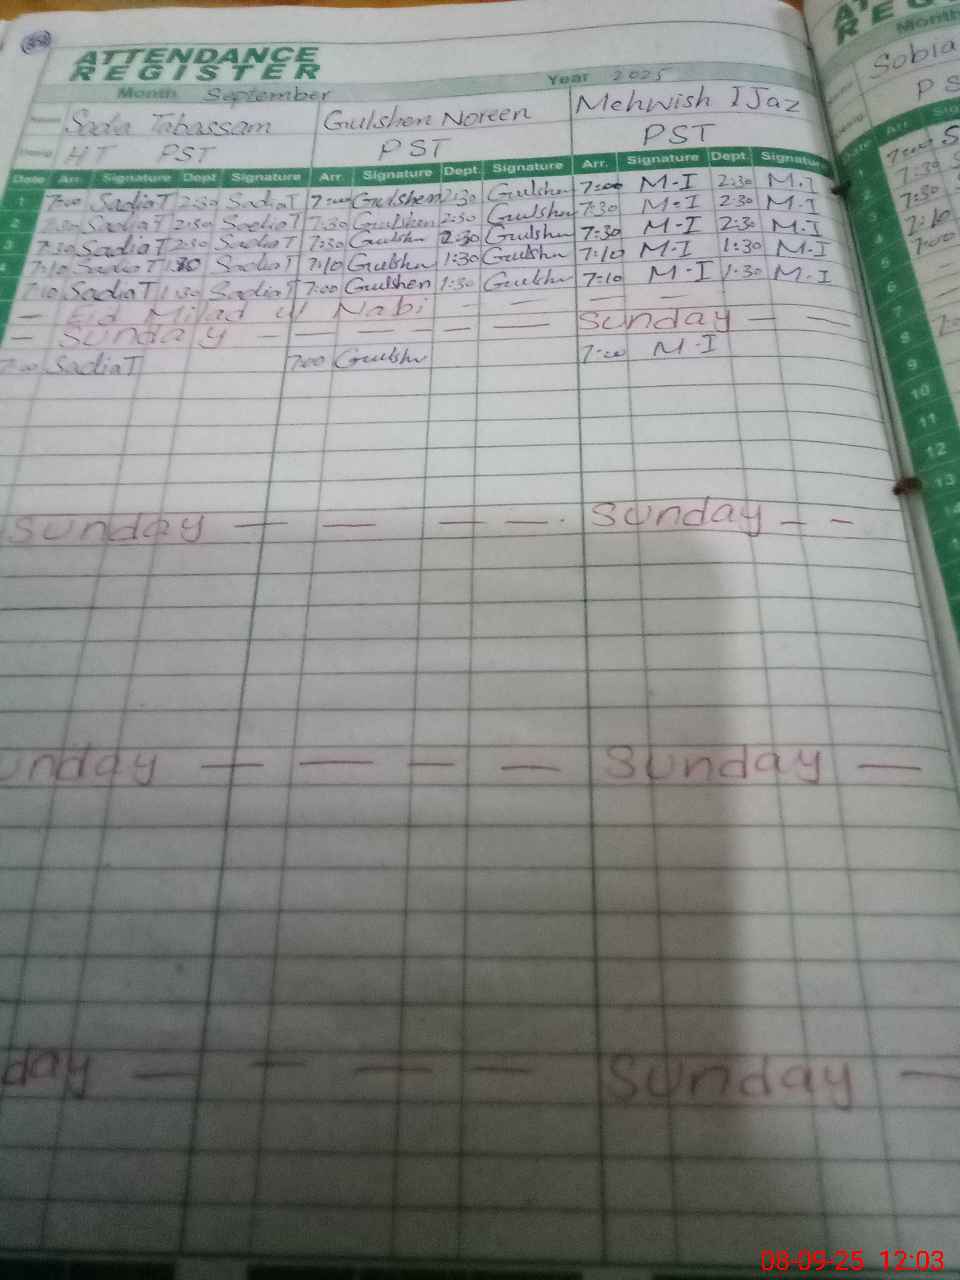 ATTENDANCE
REGISTER
Month September Year 2025
Sadia Tabassam Gulshen Noreen Mehwish IJaz
HT PST PST PST
Date Arr. Signature Dept Signature Arr. Signature Dept. Signature Arr. Signature Dept Signature
1 7:00 SadiaT 2:30 SadiaT 7:00 Gulshen 2:30 Gulshn 7:00 M-I 2:30 M.I
2 7:30 SadiaT 2:30 SadiaT 7:30 Gulshen 2:30 Gulshn 7:30 M-I 2:30 M.I
3 7:30 SadiaT 2:30 SadiaT 7:30 Gulshn 2:30 Gulshn 7:30 M-I 2:30 M.I
4 7:10 SadiaT 1:30 SadiaT 7:10 Gulshn 1:30 Gulshn 7:10 M-I 1:30 M.I
7:10 SadiaT 1:30 SadiaT 7:00 Gulshen 1:30 Gulshn 7:10 M-I 1:30 M.I
— Eid Milad Nabi — — — —
— Sunday — — — — — Sunday — —
7:00 SadiaT 7:00 Gulshn 7:00 M-I
Sunday — — — — Sunday — —
unday — — — — Sunday —
day — — — — Sunday —
REG
Month
Sobia
PS
Date Arr.
1 7:00 S
2 7:30
3 7:30
4 7:10
5 7:00
6
7
8
9
10
11
12
13
14
08-09-25 12:03